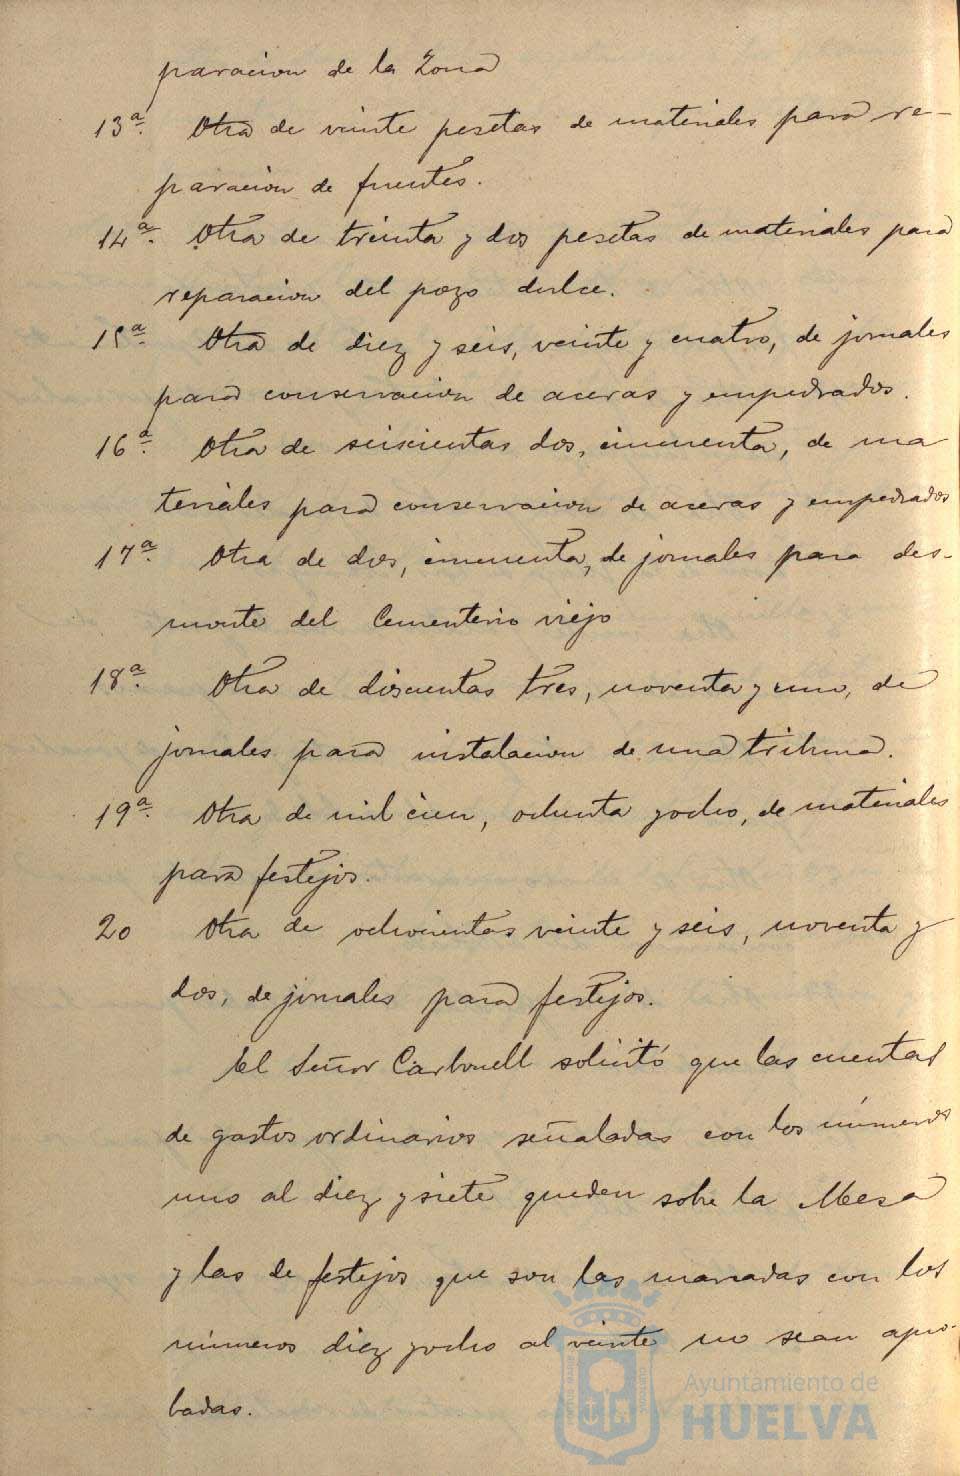 paracion de la Zona
13ª. Otra de veinte pesetas de materiales para re-
paracion de fuentes.
14ª. Otra de treinta y dos pesetas de materiales para
reparacion del pozo dulce.
15ª. Otra de diez y seis, veinte y cuatro, de jornales
para conservacion de aceras y empedrados.
16ª. Otra de seiscientas dos, cincuenta, de ma
teriales para conservacion de aceras y empedrados
17ª. Otra de dos, cincuenta, de jornales para des-
monte del Cementerio viejo
18ª. Otra de discuentas tres, noventa y uno, de
jornales para instalacion de una tribuna.
19ª. Otra de mil cien, ochenta y ocho, de materiales
para festejos.
20 Otra de ochocientas veinte y seis, noventa y
dos, de jornales para festejos.
El Señor Carbonell solicitó que las cuentas
de gastos ordinarios señaladas con los números
uno al diez y siete queden sobre la Mesa
y las de festejos que son las marcadas con los
números diez y ocho al veinte no sean apro-
badas.
Ayuntamiento de
HUELVA